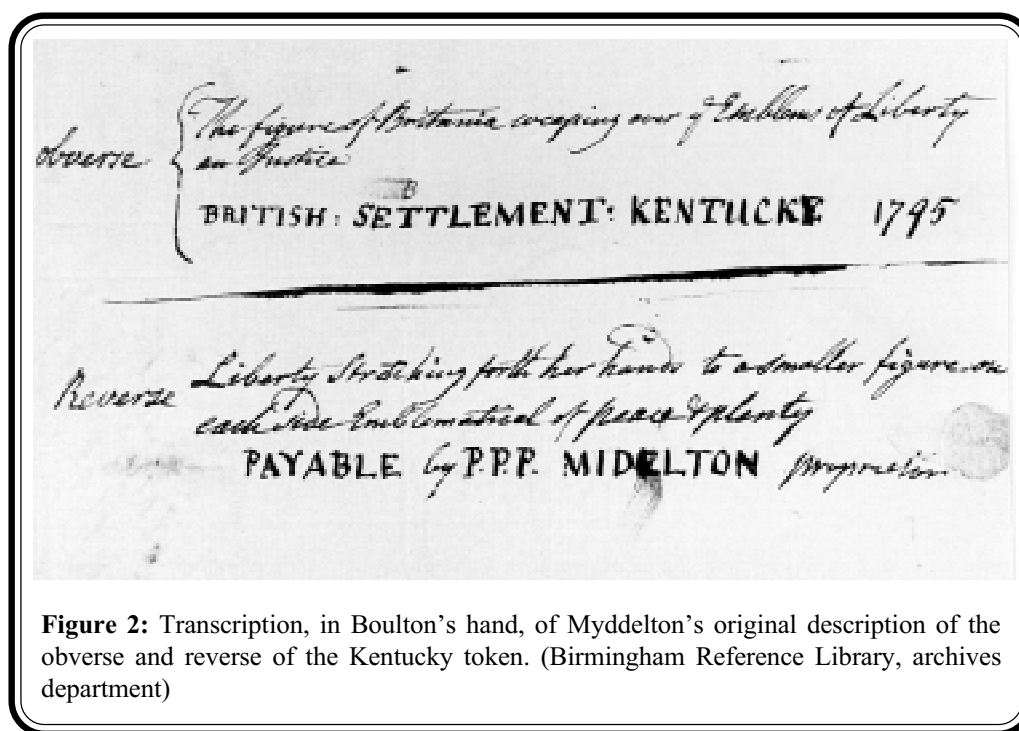 The figure of Britania weeping over ye Emblems of Liberty
Obverse
an Justice
BRITISH: SETTLEMENT: KENTUCKY 1795
Liberty Stretching forth her hands to a smaller figure on
Reverse
each side Emblematical of peace & plenty
PAYABLE by P.P.P. MIDELTON proprietor
Figure 2: Transcription, in Boulton’s hand, of Myddelton’s original description of the
obverse and reverse of the Kentucky token. (Birmingham Reference Library, archives
department)